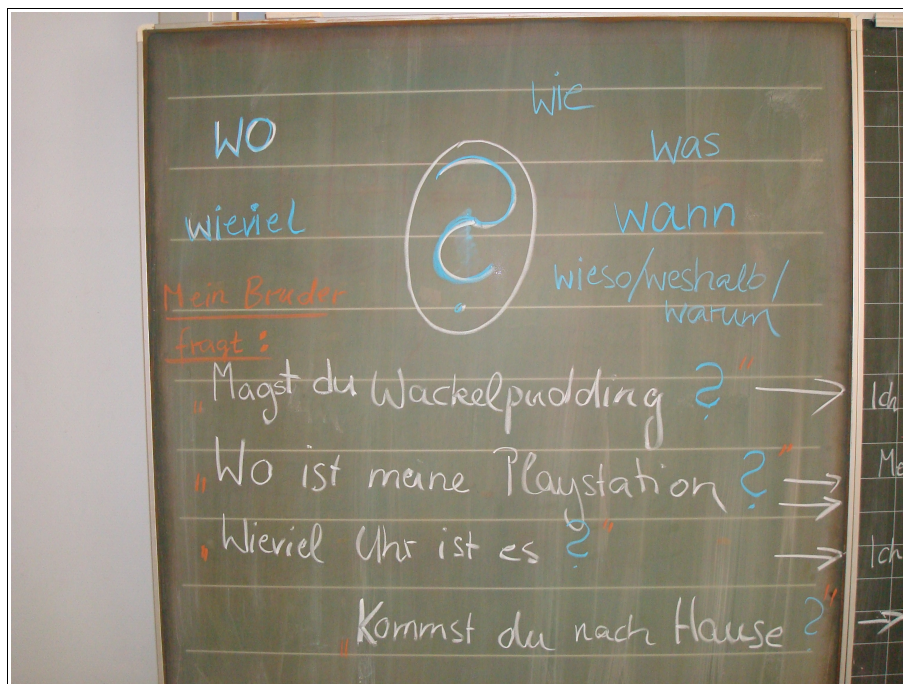 wie
wo
was
wieviel
wann
wieso/weshalb/
warum
?
Mein Bruder
fragt:
"Magst du Wackelpudding?" → Ich
"Wo ist meine Playstation?" → Me
"Wieviel Uhr ist es?" → Ich
"Kommst du nach Hause?" →